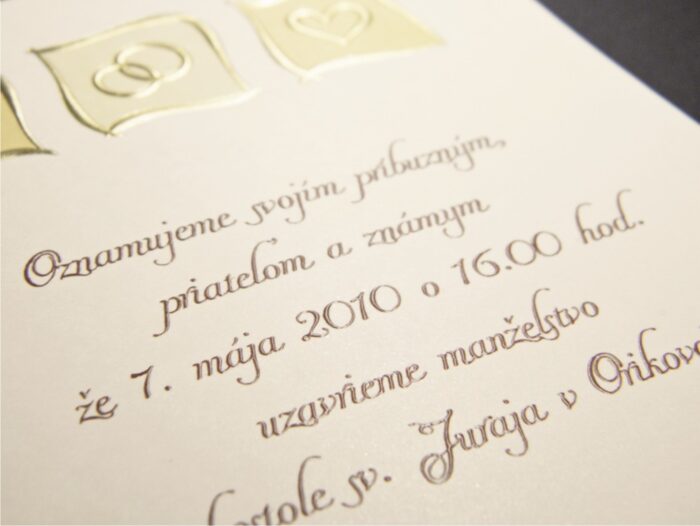 Oznamujeme svojím príbuzným,
priateľom a známym
že 7. mája 2010 o 16.00 hod.
uzavrieme manželstvo
sv. Juraja v